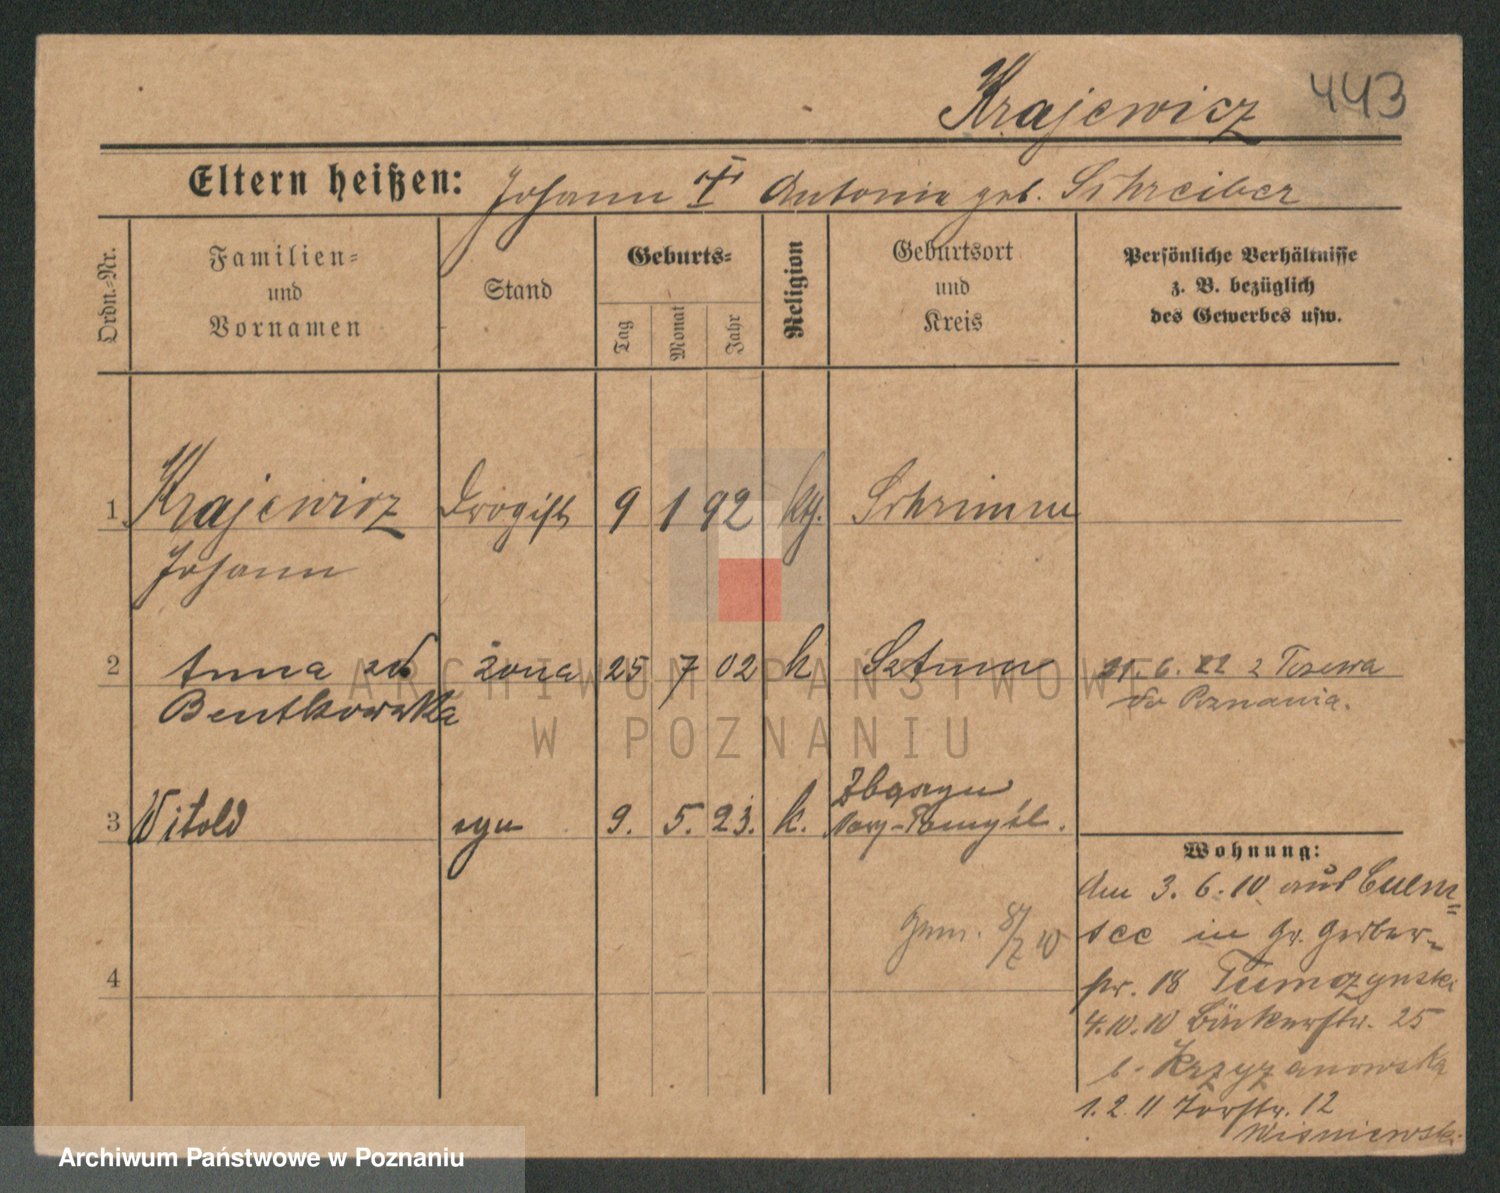 Krajewicz 443
Eltern heißen: Johann † Antonie geb. Schreiber
Ordn.-Nr.
Familien-
und
Vornamen
Stand
Geburts-
Tag
Monat
Jahr
Religion
Geburtsort
und
Kreis
Persönliche Verhältnisse
z. B. bezüglich
des Gewerbes usw.
1 Krajewicz Drogist 9 1 92 kg. Schrimm
Johann
2 Anna zd żona 25 7 02 k Sztum 21. 6. 22 z Tczewa
Bentkowska do Poznania.
3 Witold syn 9. 5. 23. k. Zbąszyn
Nowy-Tomyśl.
4
Wohnung:
Am 3. 6. 10 aus Culm-
see in Gr. Gerber-
str. 18 Tumczynski
4.10.10 Bäckerstr. 25
b. Krzyzanowska
1. 2. 11 Torstr. 12
Wisniewski
ARCHIWUM PAŃSTWOWE
W POZNANIU
Archiwum Państwowe w Poznaniu